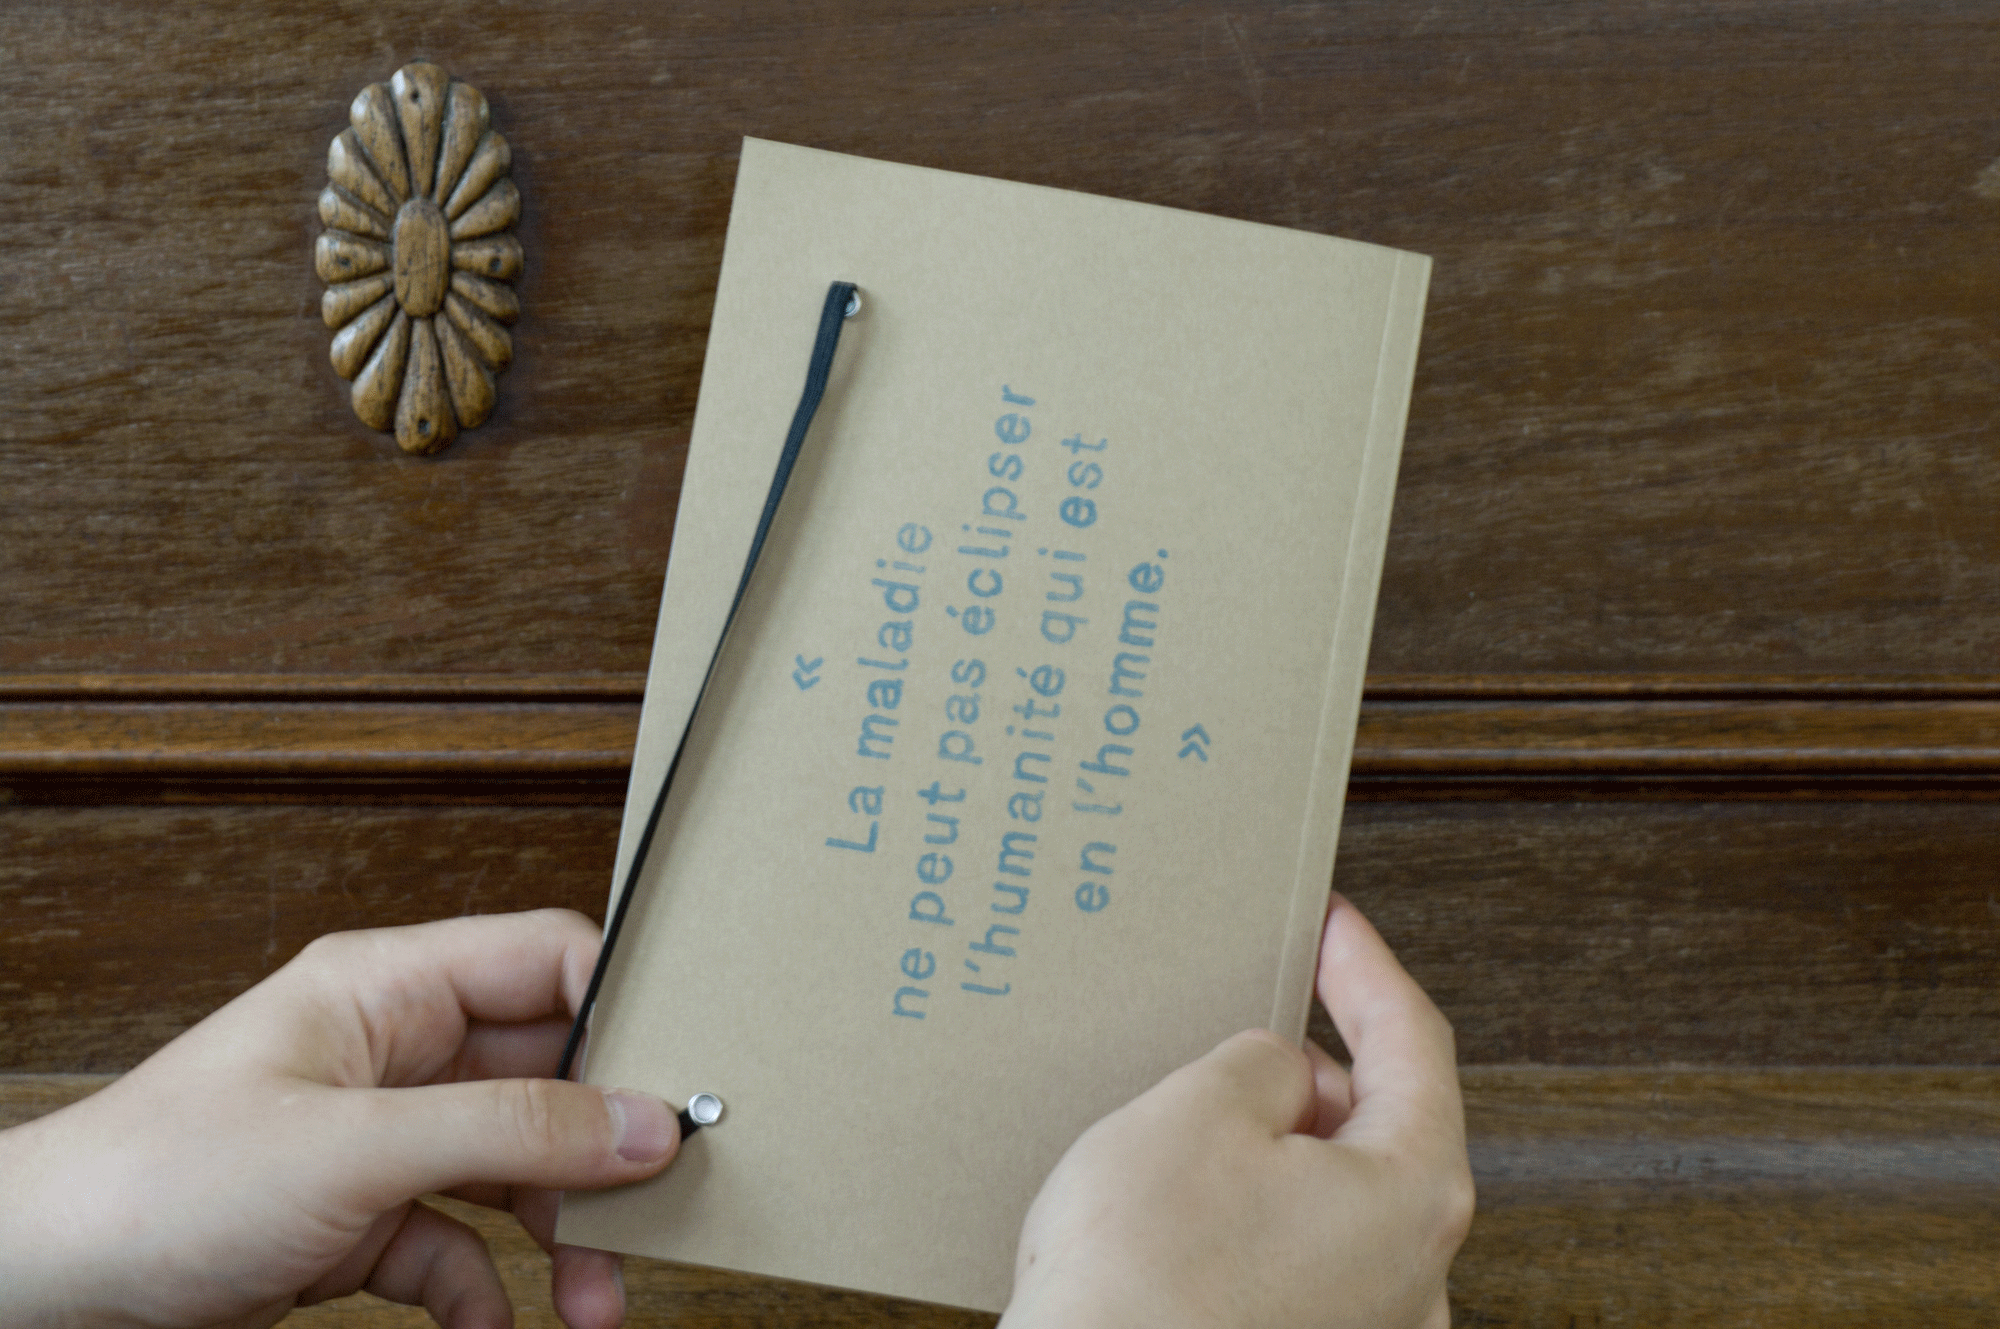 «
La maladie
ne peut pas éclipser
l'humanité qui est
en l'homme.
»